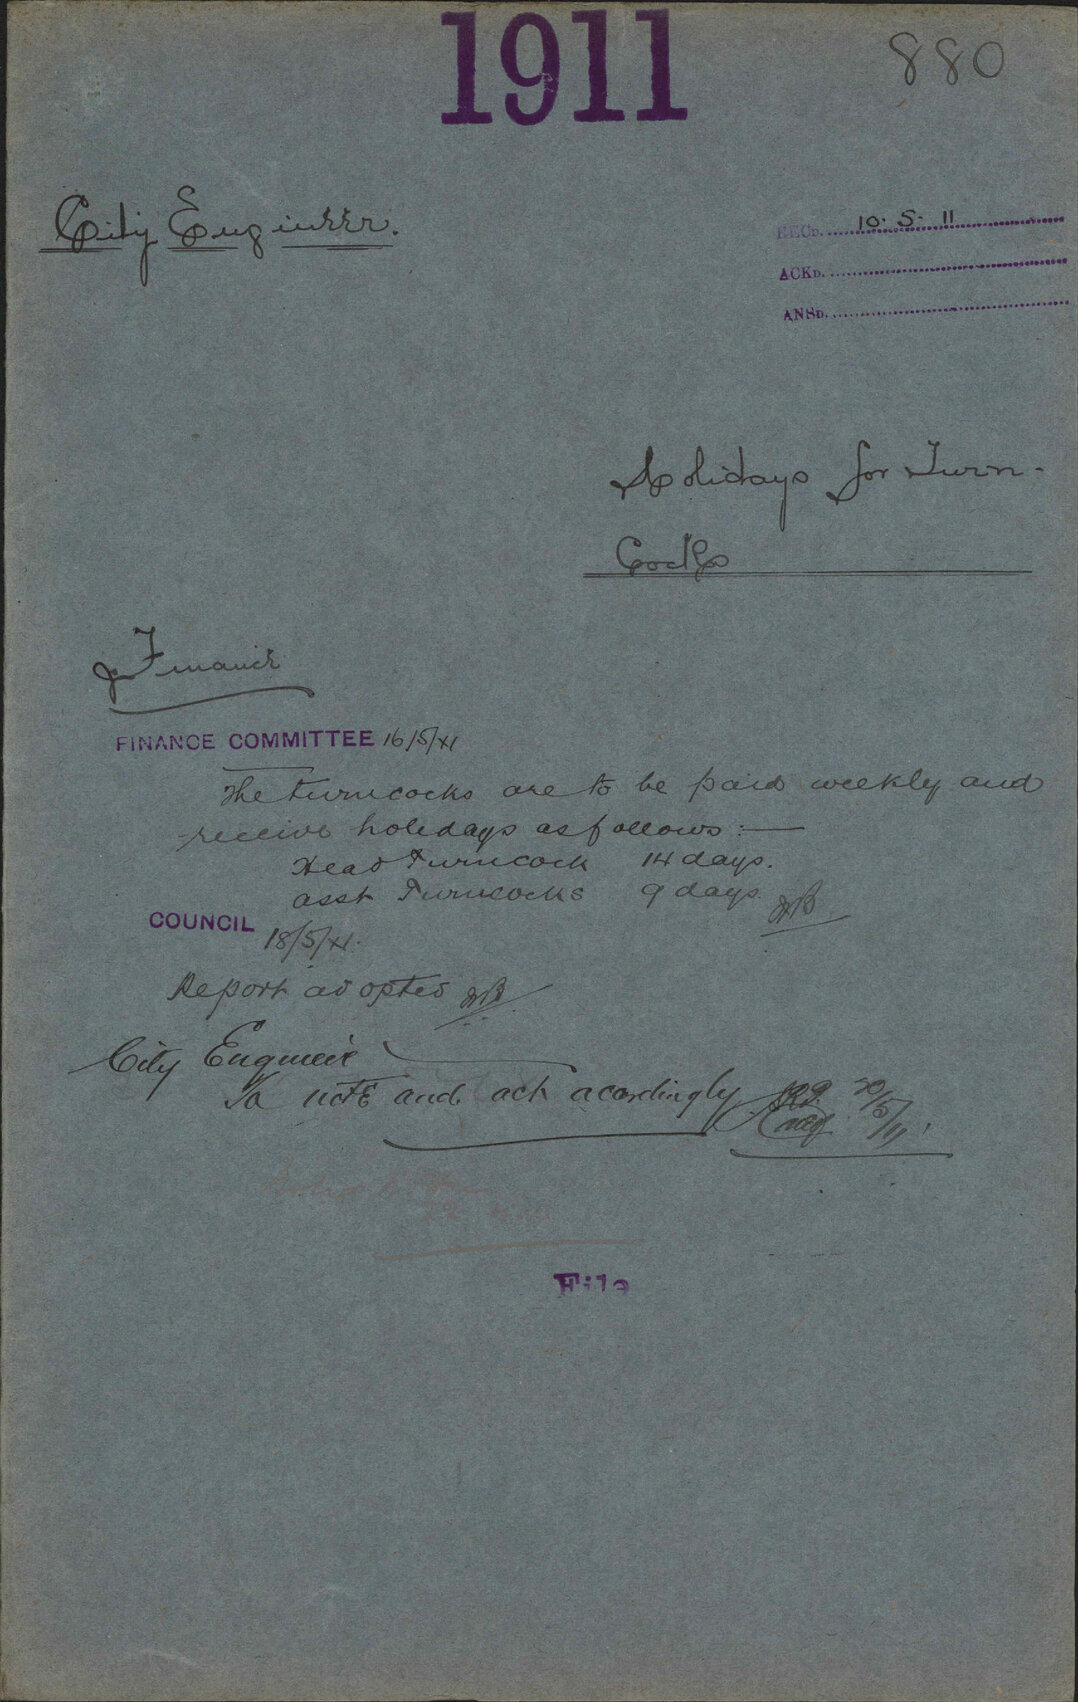 1911
880
City Engineer.
RECD. 10. 5. 11
ACKD.
ANSD.
Holidays for Turn-
Cocks
Finance
FINANCE COMMITTEE 16/5/XI
The turncocks are to be paid weekly and
receive holidays as follows:—
Head Turncock 14 days.
asst Turncocks 9 days.
COUNCIL
18/5/XI.
Report adopted
City Engineer
To note and act acordingly
20/5/11
File